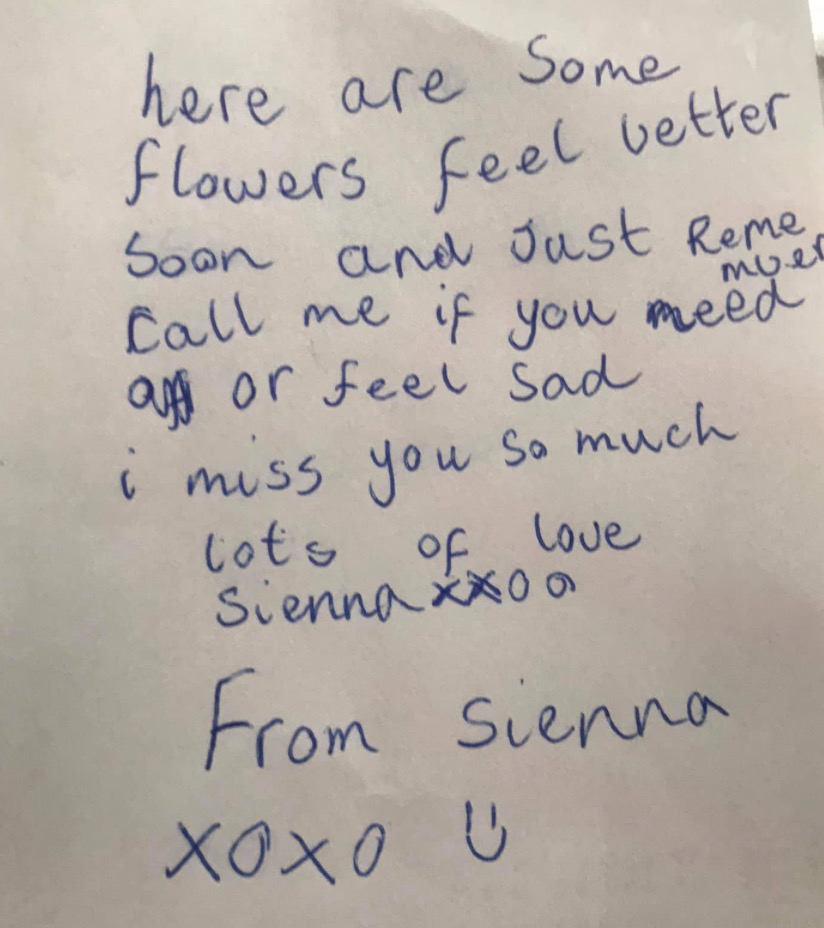 here are some
flowers feel better
Soon and Just Reme
mber
Call me if you need
or feel sad
i miss you so much
lots of love
Sienna xxoo
From Sienna
xoxo